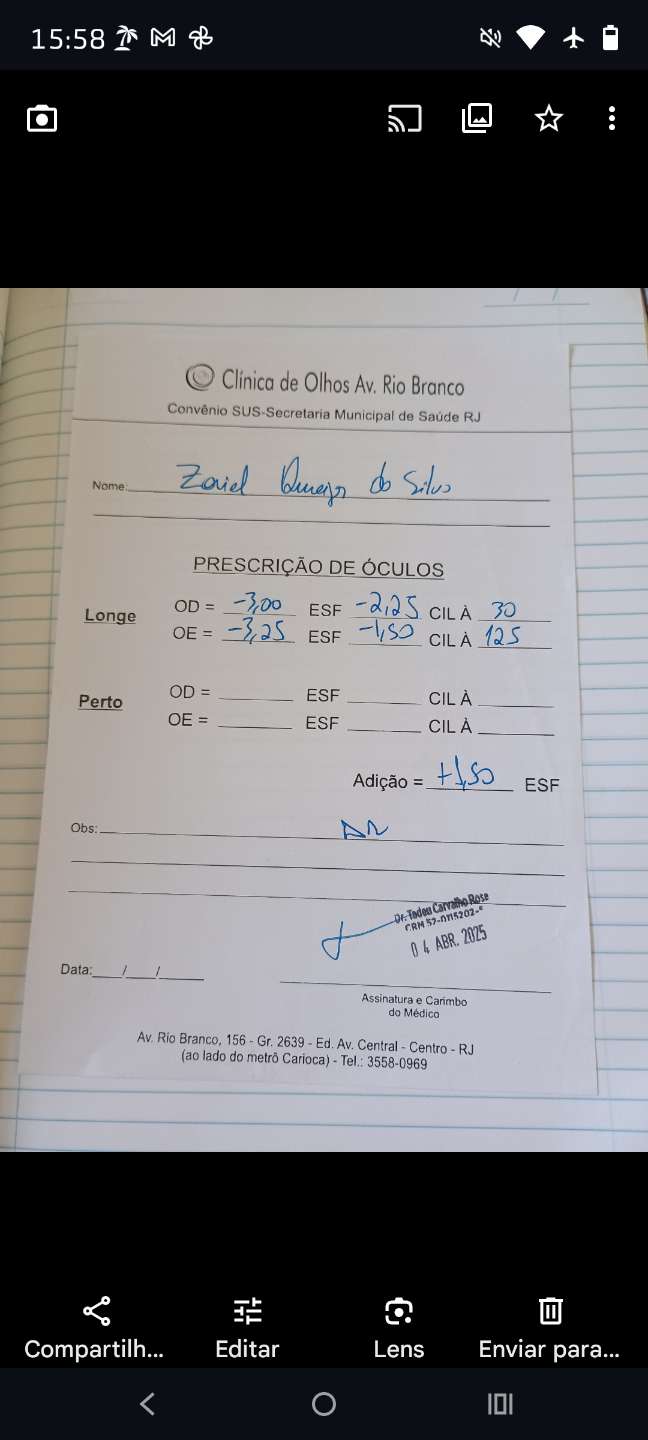 15:58
Clínica de Olhos Av. Rio Branco
Convênio SUS-Secretaria Municipal de Saúde RJ
Nome: do Silva
PRESCRIÇÃO DE ÓCULOS
Longe
OD = -3,00 ESF -2,25 CIL À 30
OE = -3,25 ESF -1,50 CIL À 125
Perto
OD = ESF CIL À
OE = ESF CIL À
Adição = +1,50 ESF
Obs:
Dr. Tadeu Carvalho Rose
04 ABR. 2025
Data: / /
Assinatura e Carimbo
do Médico
Av. Rio Branco, 156 - Gr. 2639 - Ed. Av. Central - Centro - RJ
(ao lado do metrô Carioca) - Tel.: 3558-0969
Compartilh... Editar Lens Enviar para...